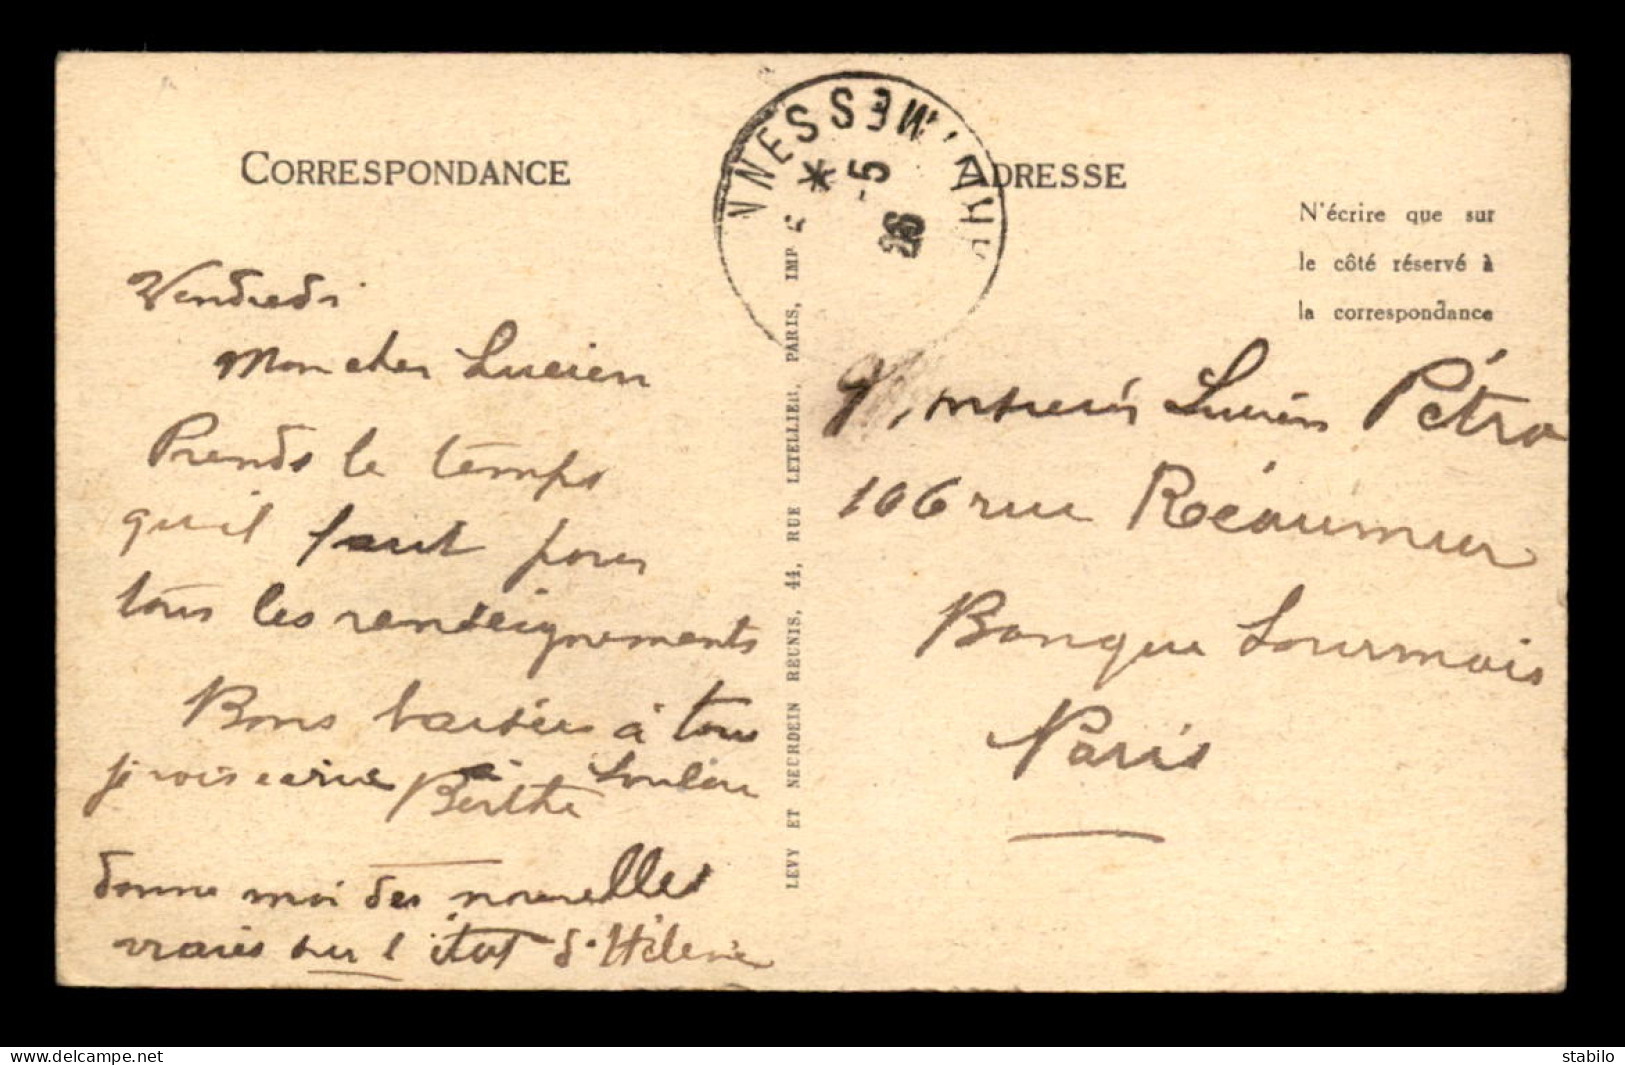 CORRESPONDANCE
Vendredi
Mon cher Lucien
Prends le temps
qu'il faut pour
tous les renseignements
Bons baisers à tous
je vois Loulou
Berthe
donne moi des nouvelles
vraies sur l'état d'Hélène
LEVY ET NEURDEIN RÉUNIS, 44, RUE LETELLIER, PARIS, IMP
NNESSEM
* -5
26
ADRESSE
N'écrire que sur
le côté réservé à
la correspondance
Monsieur Lucien Pétro
106 rue Réaumur
Banque
Paris
www.delcampe.net
stabilo